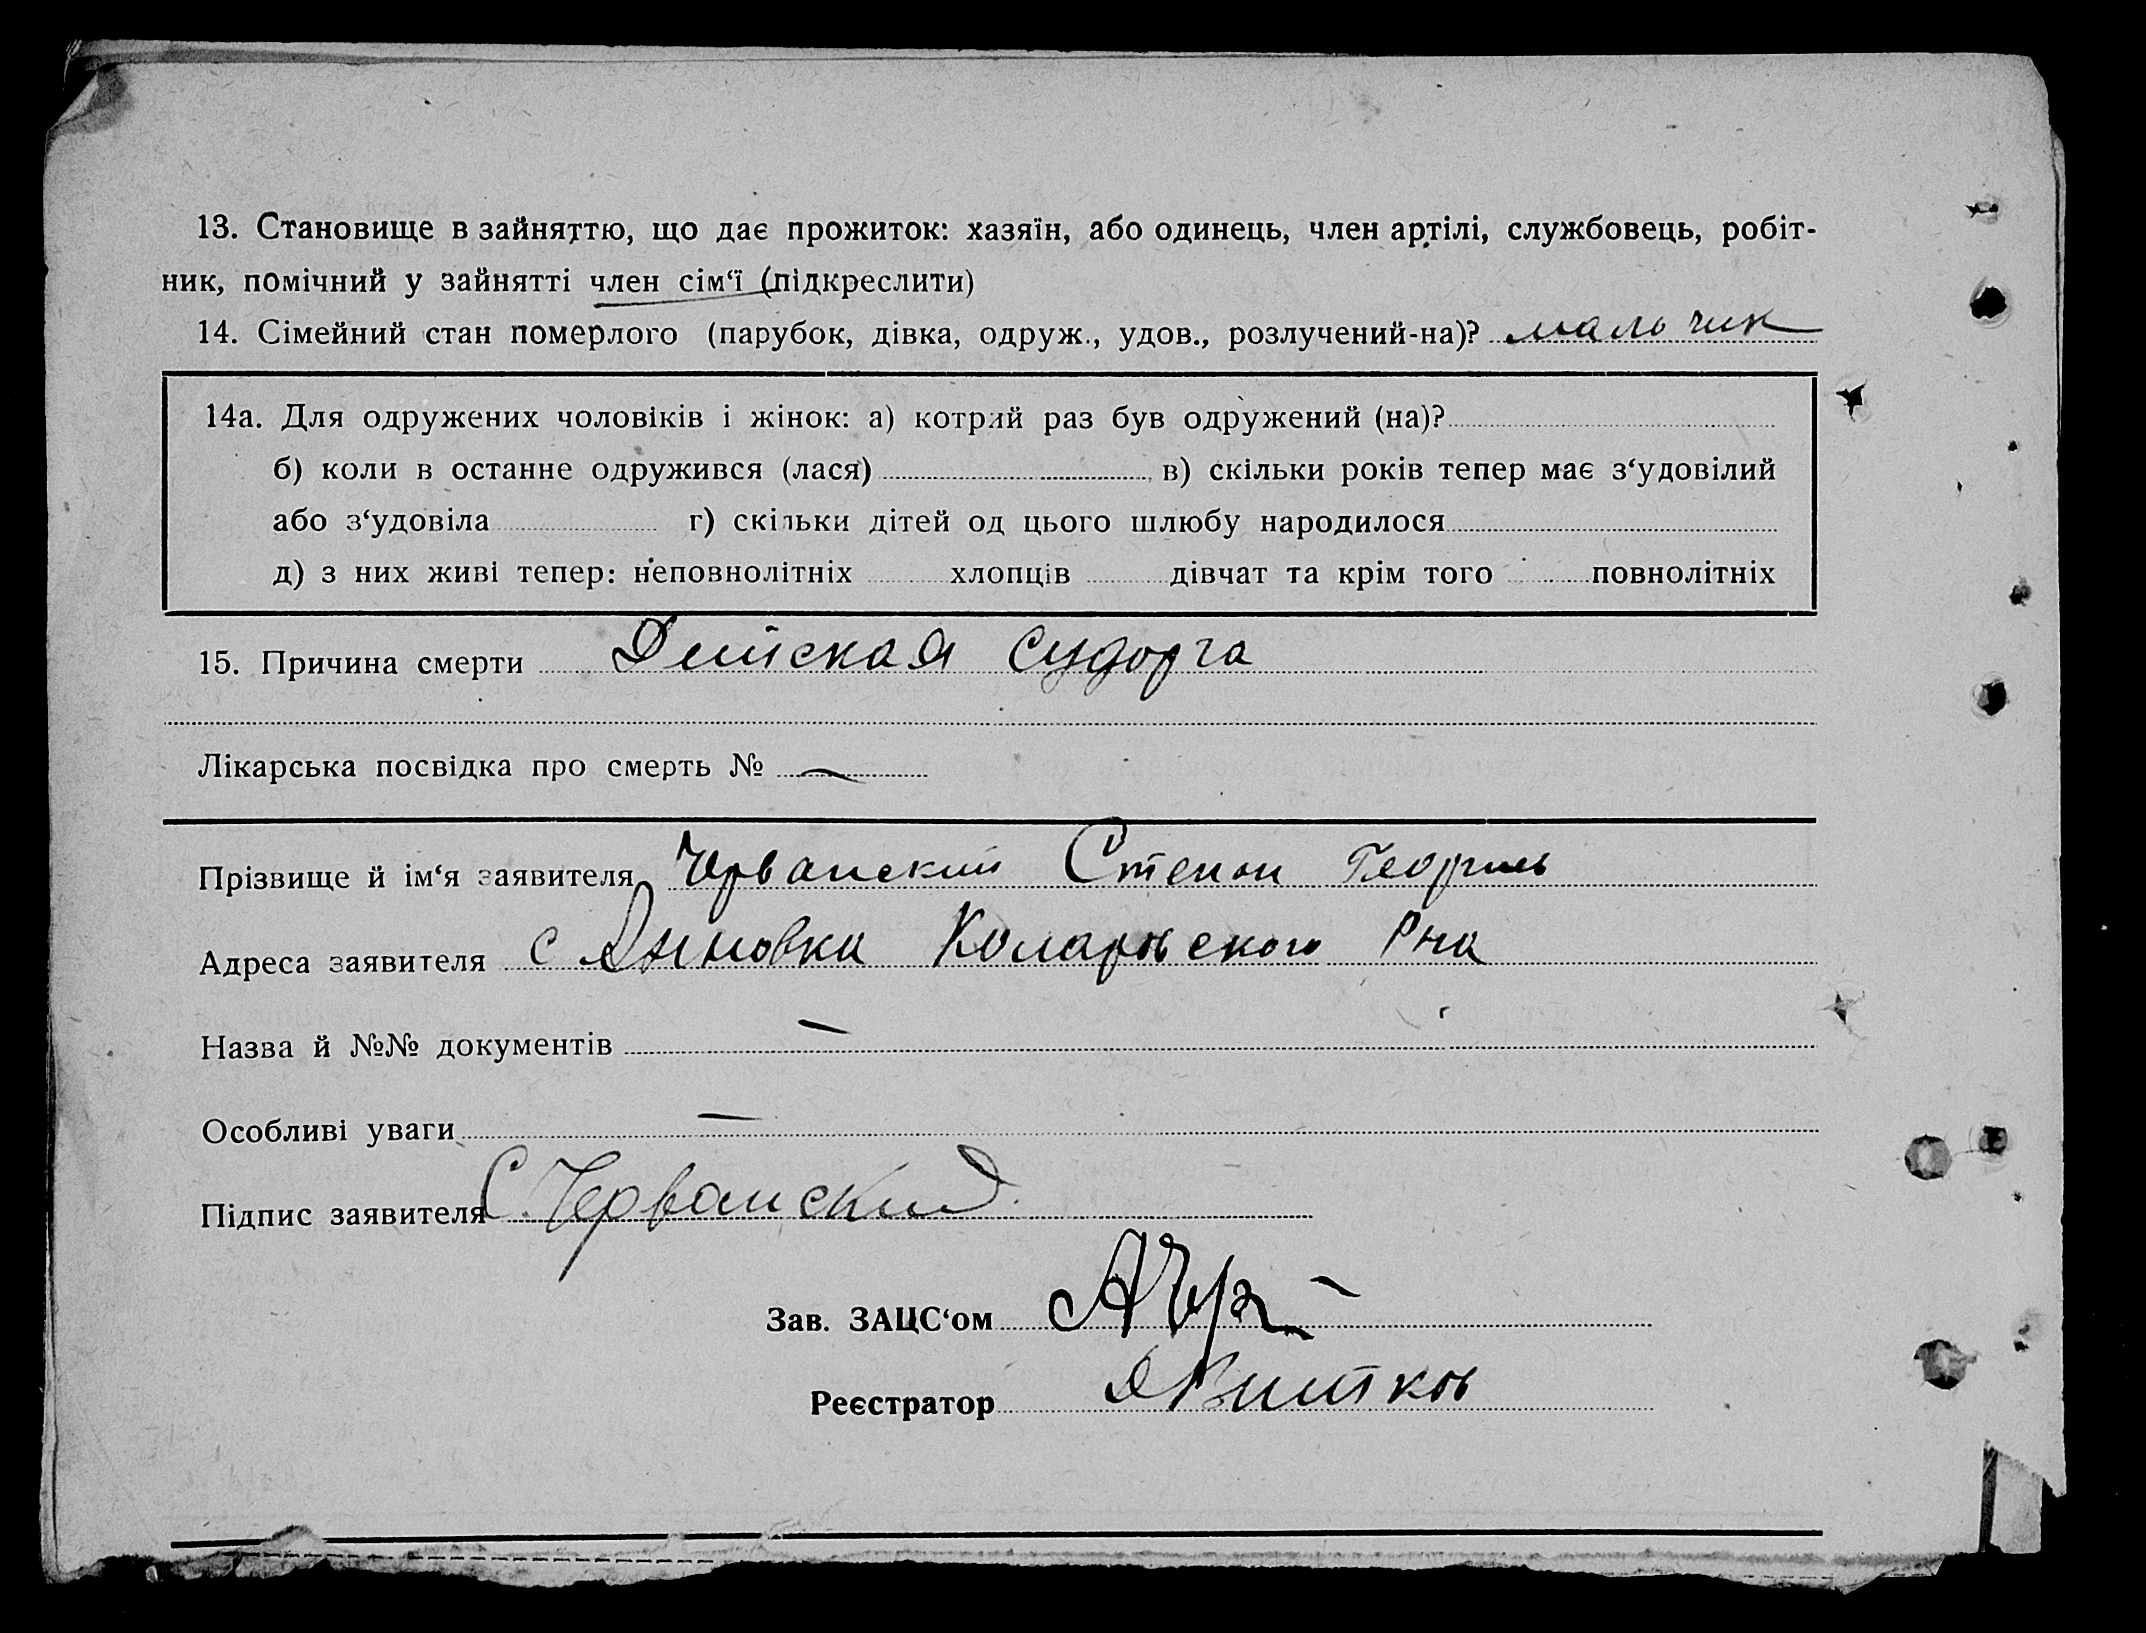 13. Становище в зайняттю, що дає прожиток: хазяїн, або одинець, член артілі, службовець, робіт-
ник, помічний у зайнятті член сім‘ї (підкреслити)
14. Сімейний стан померлого (парубок, дівка, одруж., удов., розлучений-на)? мальчик
14а. Для одружених чоловіків і жінок: а) котрий раз був одружений (на)?
б) коли в останне одружився (лася) в) скільки років тепер має з‘удовілий
або з‘удовіла г) скільки дітей од цього шлюбу народилося
д) з них живі тепер: неповнолітніх хлопців дівчат та крім того повнолітніх
15. Причина смерти Детская судорга
Лікарська посвідка про смерть № —
Прізвище й ім‘я заявителя Черванский Степан Георгиев
Адреса заявителя с Дяновка Коларовского Рна
Назва й №№ документів —
Особливі уваги —
Підпис заявителя С. Черванский
Зав. ЗАЦС‘ом
Реєстратор